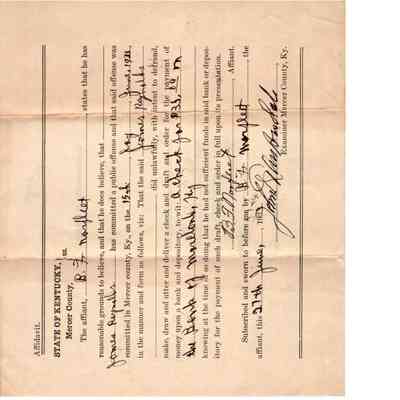 Affidavit.
STATE OF KENTUCKY, } ss.
Mercer County,
The affiant, B. F. Norfleet states that he has
reasonable grounds to believe, and that he does believe, that
James Reynolds has committed a public offense and that said offense was
committed in Mercer county, Ky., on the 15th day June 1921.
in the manner and form as follows, viz: That the said James Reynolds
did unlawfully, with intent to defraud,
make, draw and utter and deliver a check and draft and order for the payment of
money upon a bank and depository, to wit: a check for
the Bank of Ky
knowing at the time of so doing that he had not sufficient funds in said bank or depos-
itory for the payment of such draft, check and order in full upon its presentation.
B F Norfleet Affiant.
Subscribed and sworn to before me by B. F. Norfleet, the
affiant, this 27th June, 192
Examiner Mercer County, Ky.